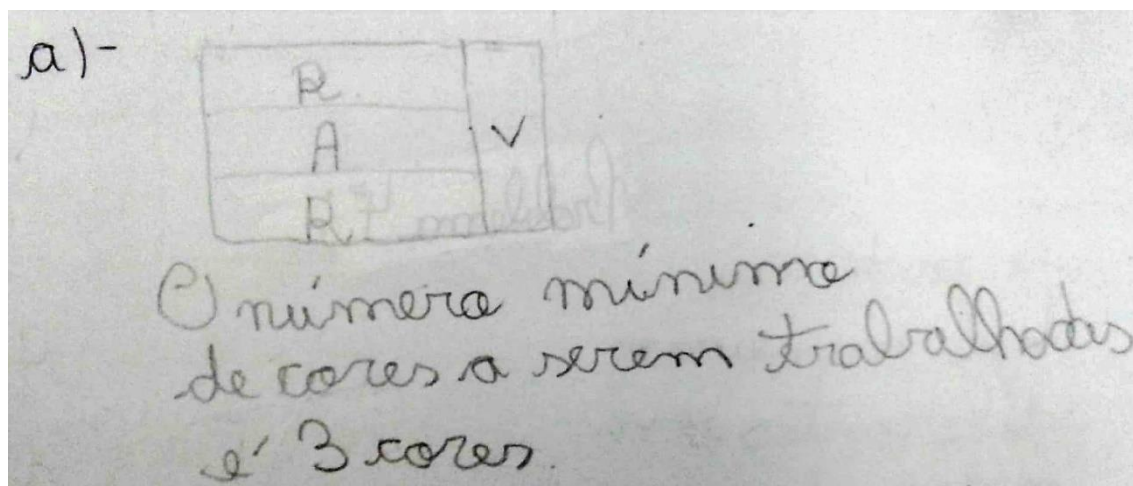 a)-
R
A V
R
O número mínimo
de cores a serem trabalhadas
é 3 cores.